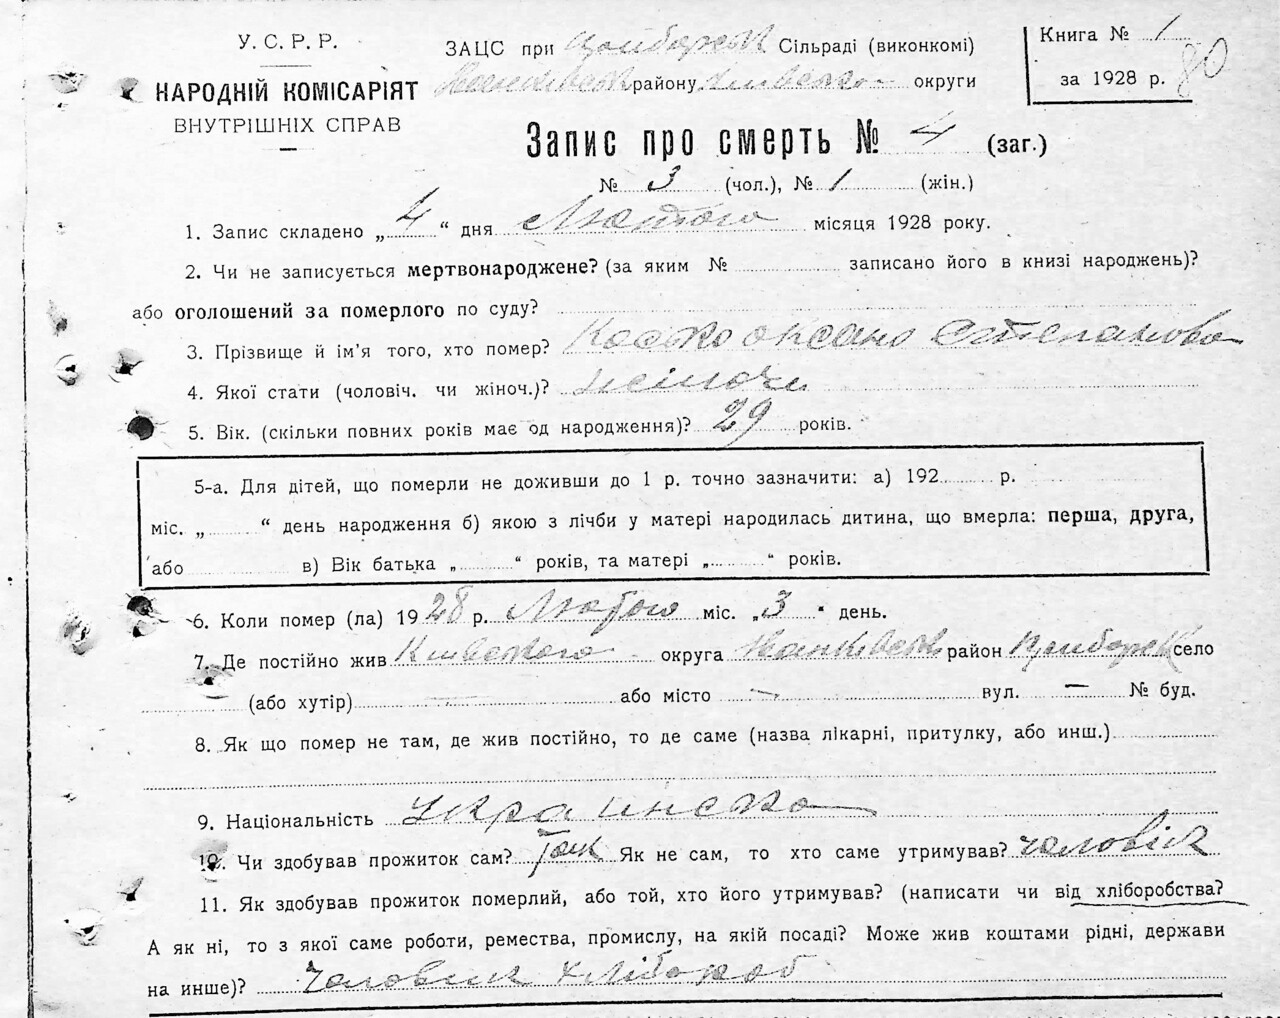 У. С. Р. Р.
НАРОДНІЙ КОМІСАРІЯТ
ВНУТРІШНІХ СПРАВ
ЗАЦС при Сільраді (виконкомі)
району округи
Книга № 1
за 1928 р.
80
Запис про смерть № 4 (заг.)
№ 3 (чол.), № 1 (жін.)
1. Запис складено „ 4 “ дня Лютого місяця 1928 року.
2. Чи не записується мертвонароджене? (за яким № записано його в книзі народжень)?
або оголошений за померлого по суду?
3. Прізвище й ім'я того, хто помер? Оксана Степанова
4. Якої стати (чоловіч. чи жіноч.)?
5. Вік. (скільки повних років має од народження)? 29 років.
5-а. Для дітей, що померли не доживши до 1 р. точно зазначити: а) 192 р.
міс. „ “ день народження б) якою з лічби у матері народилась дитина, що вмерла: перша, друга,
або в) Вік батька „ “ років, та матері „ “ років.
6. Коли помер (ла) 1928 р. Лютого міс. „ 3 “ день.
7. Де постійно жив Київского округа район село
(або хутір) — або місто — вул. — № буд.
8. Як що помер не там, де жив постійно, то де саме (назва лікарні, притулку, або инш.)
9. Національність Українска
10. Чи здобував прожиток сам? Як не сам, то хто саме утримував? чоловік
11. Як здобував прожиток померлий, або той, хто його утримував? (написати чи від хліборобства?
А як ні, то з якої саме роботи, ремества, промислу, на якій посаді? Може жив коштами рідні, держави
на инше)? Чаловик хлібороб